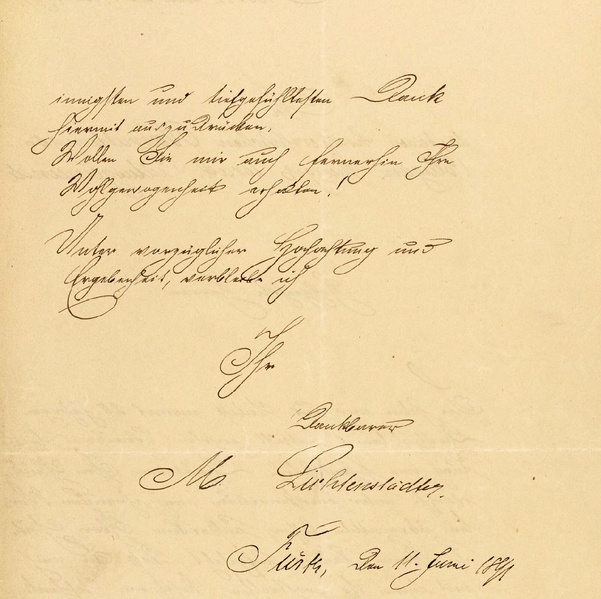 innigsten und tiefgefühltesten Dank
hiermit auszudrücken.
Wollen Sie mir auch fernerhin Ihre
Wohlgewogenheit erhalten!
Unter vorzüglicher Hochachtung und
Ergebenheit, verbleibe ich
Ihr
Dankbarer
M. Lichtenstädter.
Fürth, den 11. Juni 1891